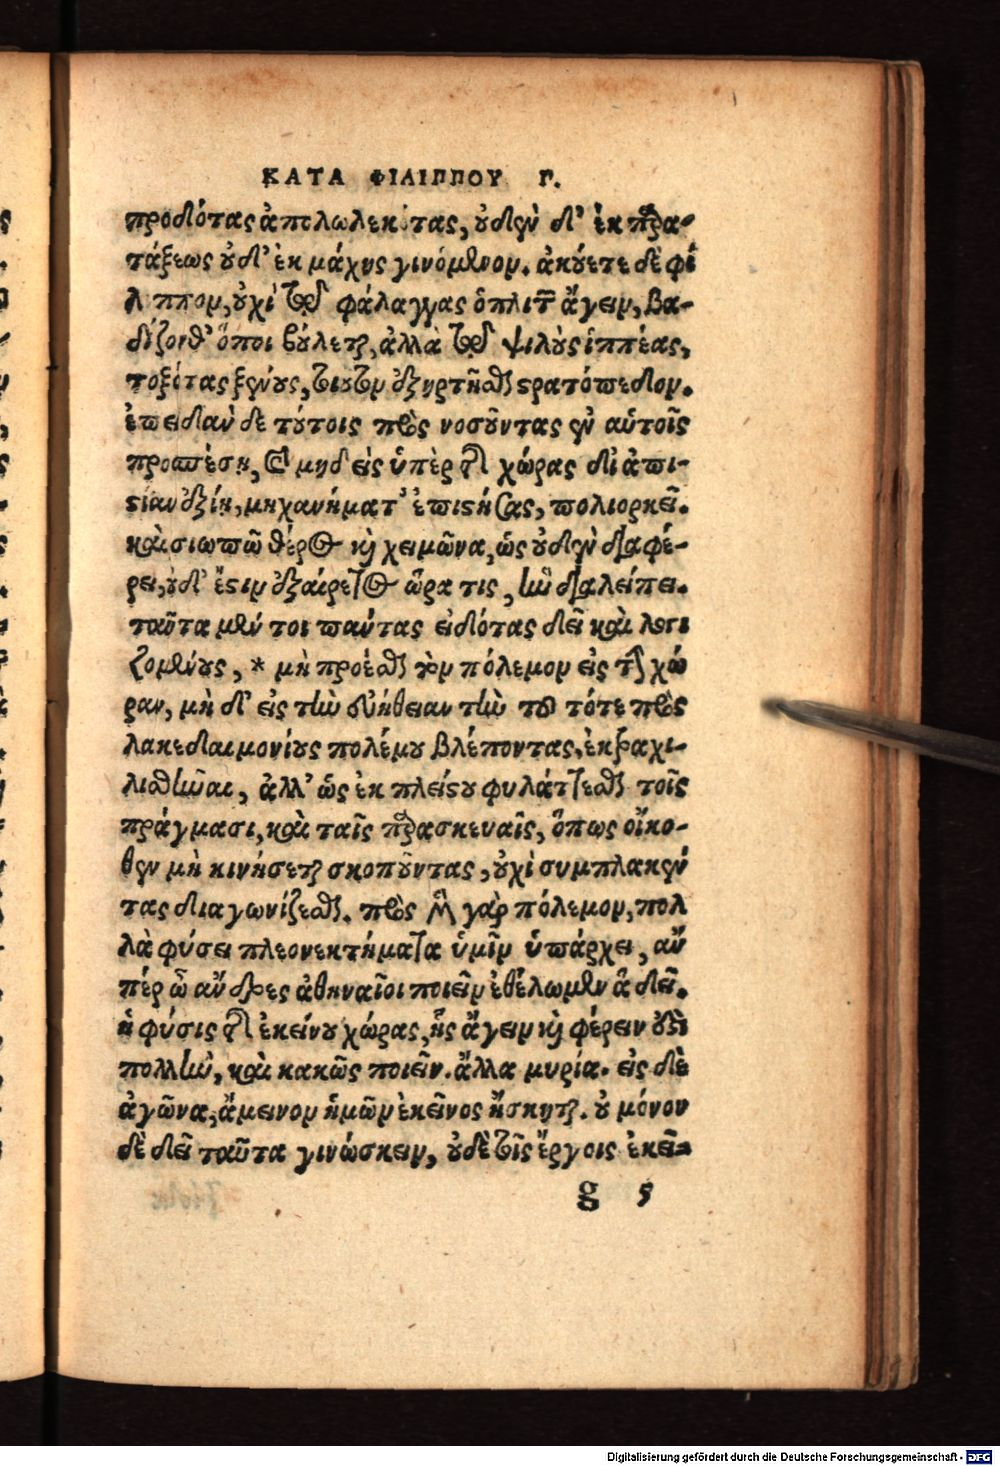 ΚΑΤΑ ΦΙΛΙΠΠΟΥ Γ.
προδότας ἀπολωλεκότας, οὐδὲν δ' ἐκ παρα-
τάξεως οὐδ' ἐκ μάχης γινόμενον. ἀκούετε δὲ φί
λιππον, οὐχὶ τῷ φάλαγγας ὁπλιτῶν ἄγειν, βα-
δίζονθ' ὅποι βούλεται, ἀλλὰ τῷ ψιλοὺς ἱππέας,
τοξότας ξένους, τοιοῦτον ἐξηρτῆσθαι στρατόπεδον.
ἐπειδὰν δὲ τούτοις πρὸς νοσοῦντας ἐν αὑτοῖς
προσπέσῃ, καὶ μηδεὶς ὑπὲρ τῆς χώρας δι' ἀπι-
στίαν ἐξίῃ, μηχανήματ' ἐπιστήσας, πολιορκεῖ.
καὶ σιωπῶ θέρος καὶ χειμῶνα, ὡς οὐδὲν διαφέ-
ρει, οὐδ' ἔστιν ἐξαίρετος ὥρα τις, ἣν διαλείπει.
ταῦτα μέν τοι πάντας εἰδότας δεῖ καὶ λογι
ζομένους, * μὴ προέσθαι τὸν πόλεμον εἰς τὴν χώ
ραν, μὴ δ' εἰς τὴν εὐήθειαν τὴν τοῦ τότε πρὸς
λακεδαιμονίους πολέμου βλέποντας, ἐκτραχη-
λισθῆναι, ἀλλ' ὡς ἐκ πλείστου φυλάττεσθαι τοῖς
πράγμασι, καὶ ταῖς παρασκευαῖς, ὅπως οἴκο-
θεν μὴ κινήσεται σκοποῦντας, οὐχὶ συμπλακέν
τας διαγωνίζεσθαι. πρὸς μὲν γὰρ πόλεμον, πολ
λὰ φύσει πλεονεκτήματα ὑμῖν ὑπάρχει, ἄν
πέρ ὦ ἄνδρες ἀθηναῖοι ποιεῖν ἐθέλωμεν ἃ δεῖ.
ἡ φύσις τῆς ἐκείνου χώρας, ἧς ἄγειν καὶ φέρειν ἔστι
πολλὴν, καὶ κακῶς ποιεῖν. ἄλλα μυρία. εἰς δὲ
ἀγῶνα, ἄμεινον ἡμῶν ἐκεῖνος ἤσκηται. οὐ μόνον
δὲ δεῖ ταῦτα γινώσκειν, οὐδὲ τοῖς ἔργοις ἐκεῖ-
g 5
Digitalisierung gefördert durch die Deutsche Forschungsgemeinschaft - DFG